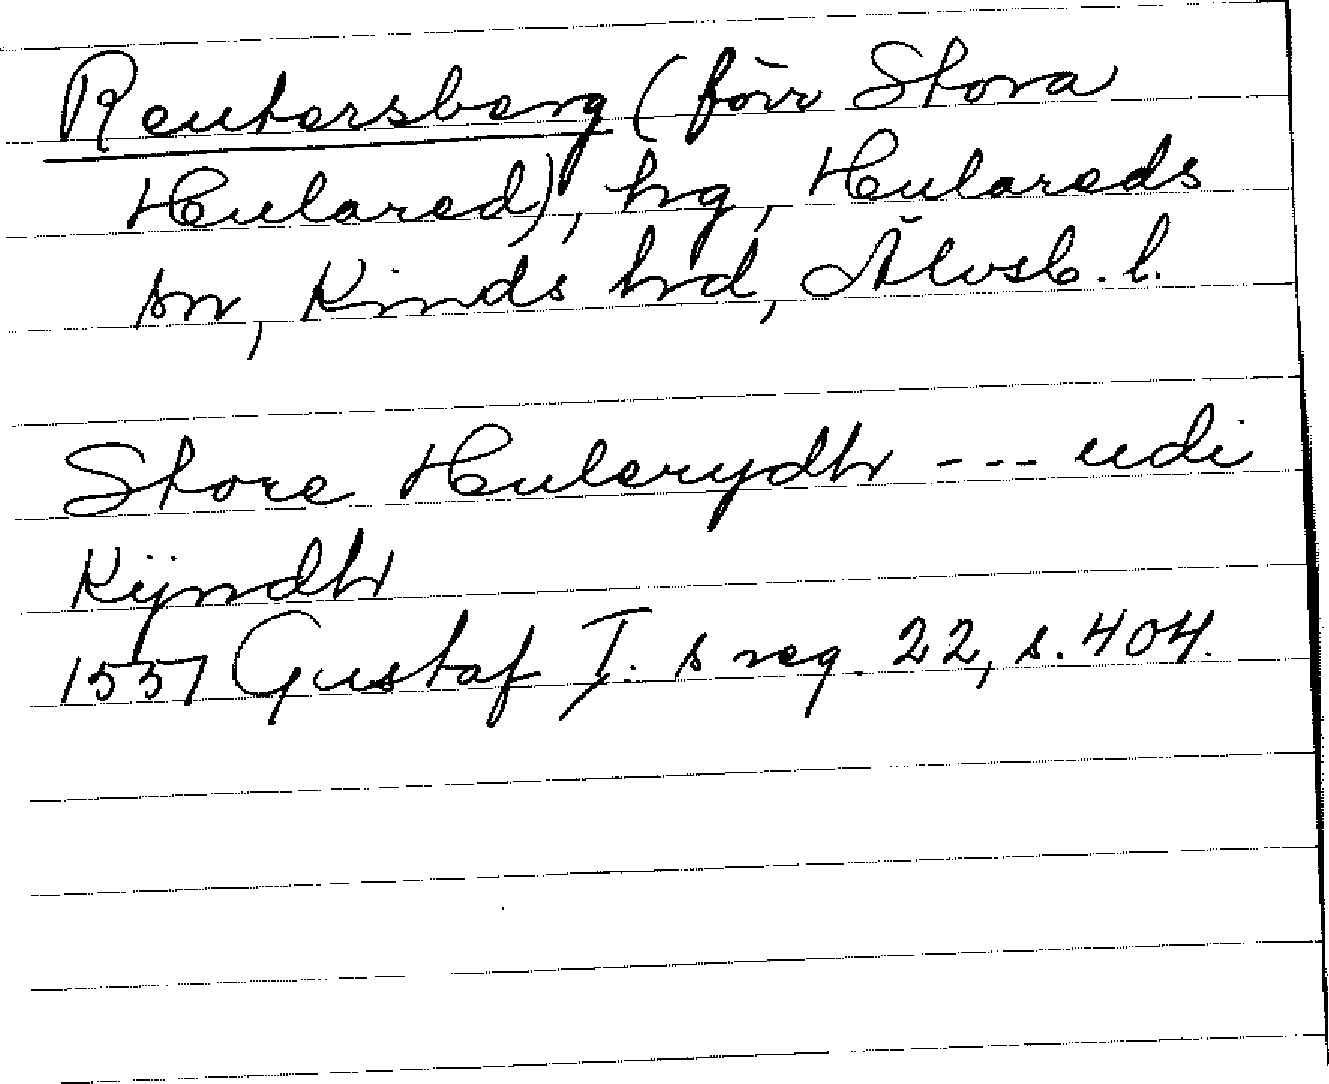 Reutersberg (förr Stora
Hulared), hg, Hulareds
sn, Kinds hrd, Älvsb. l.
Store Hulerydh --- udi
Kijndh
1557 Gustaf I. s reg. 22, s. 404.